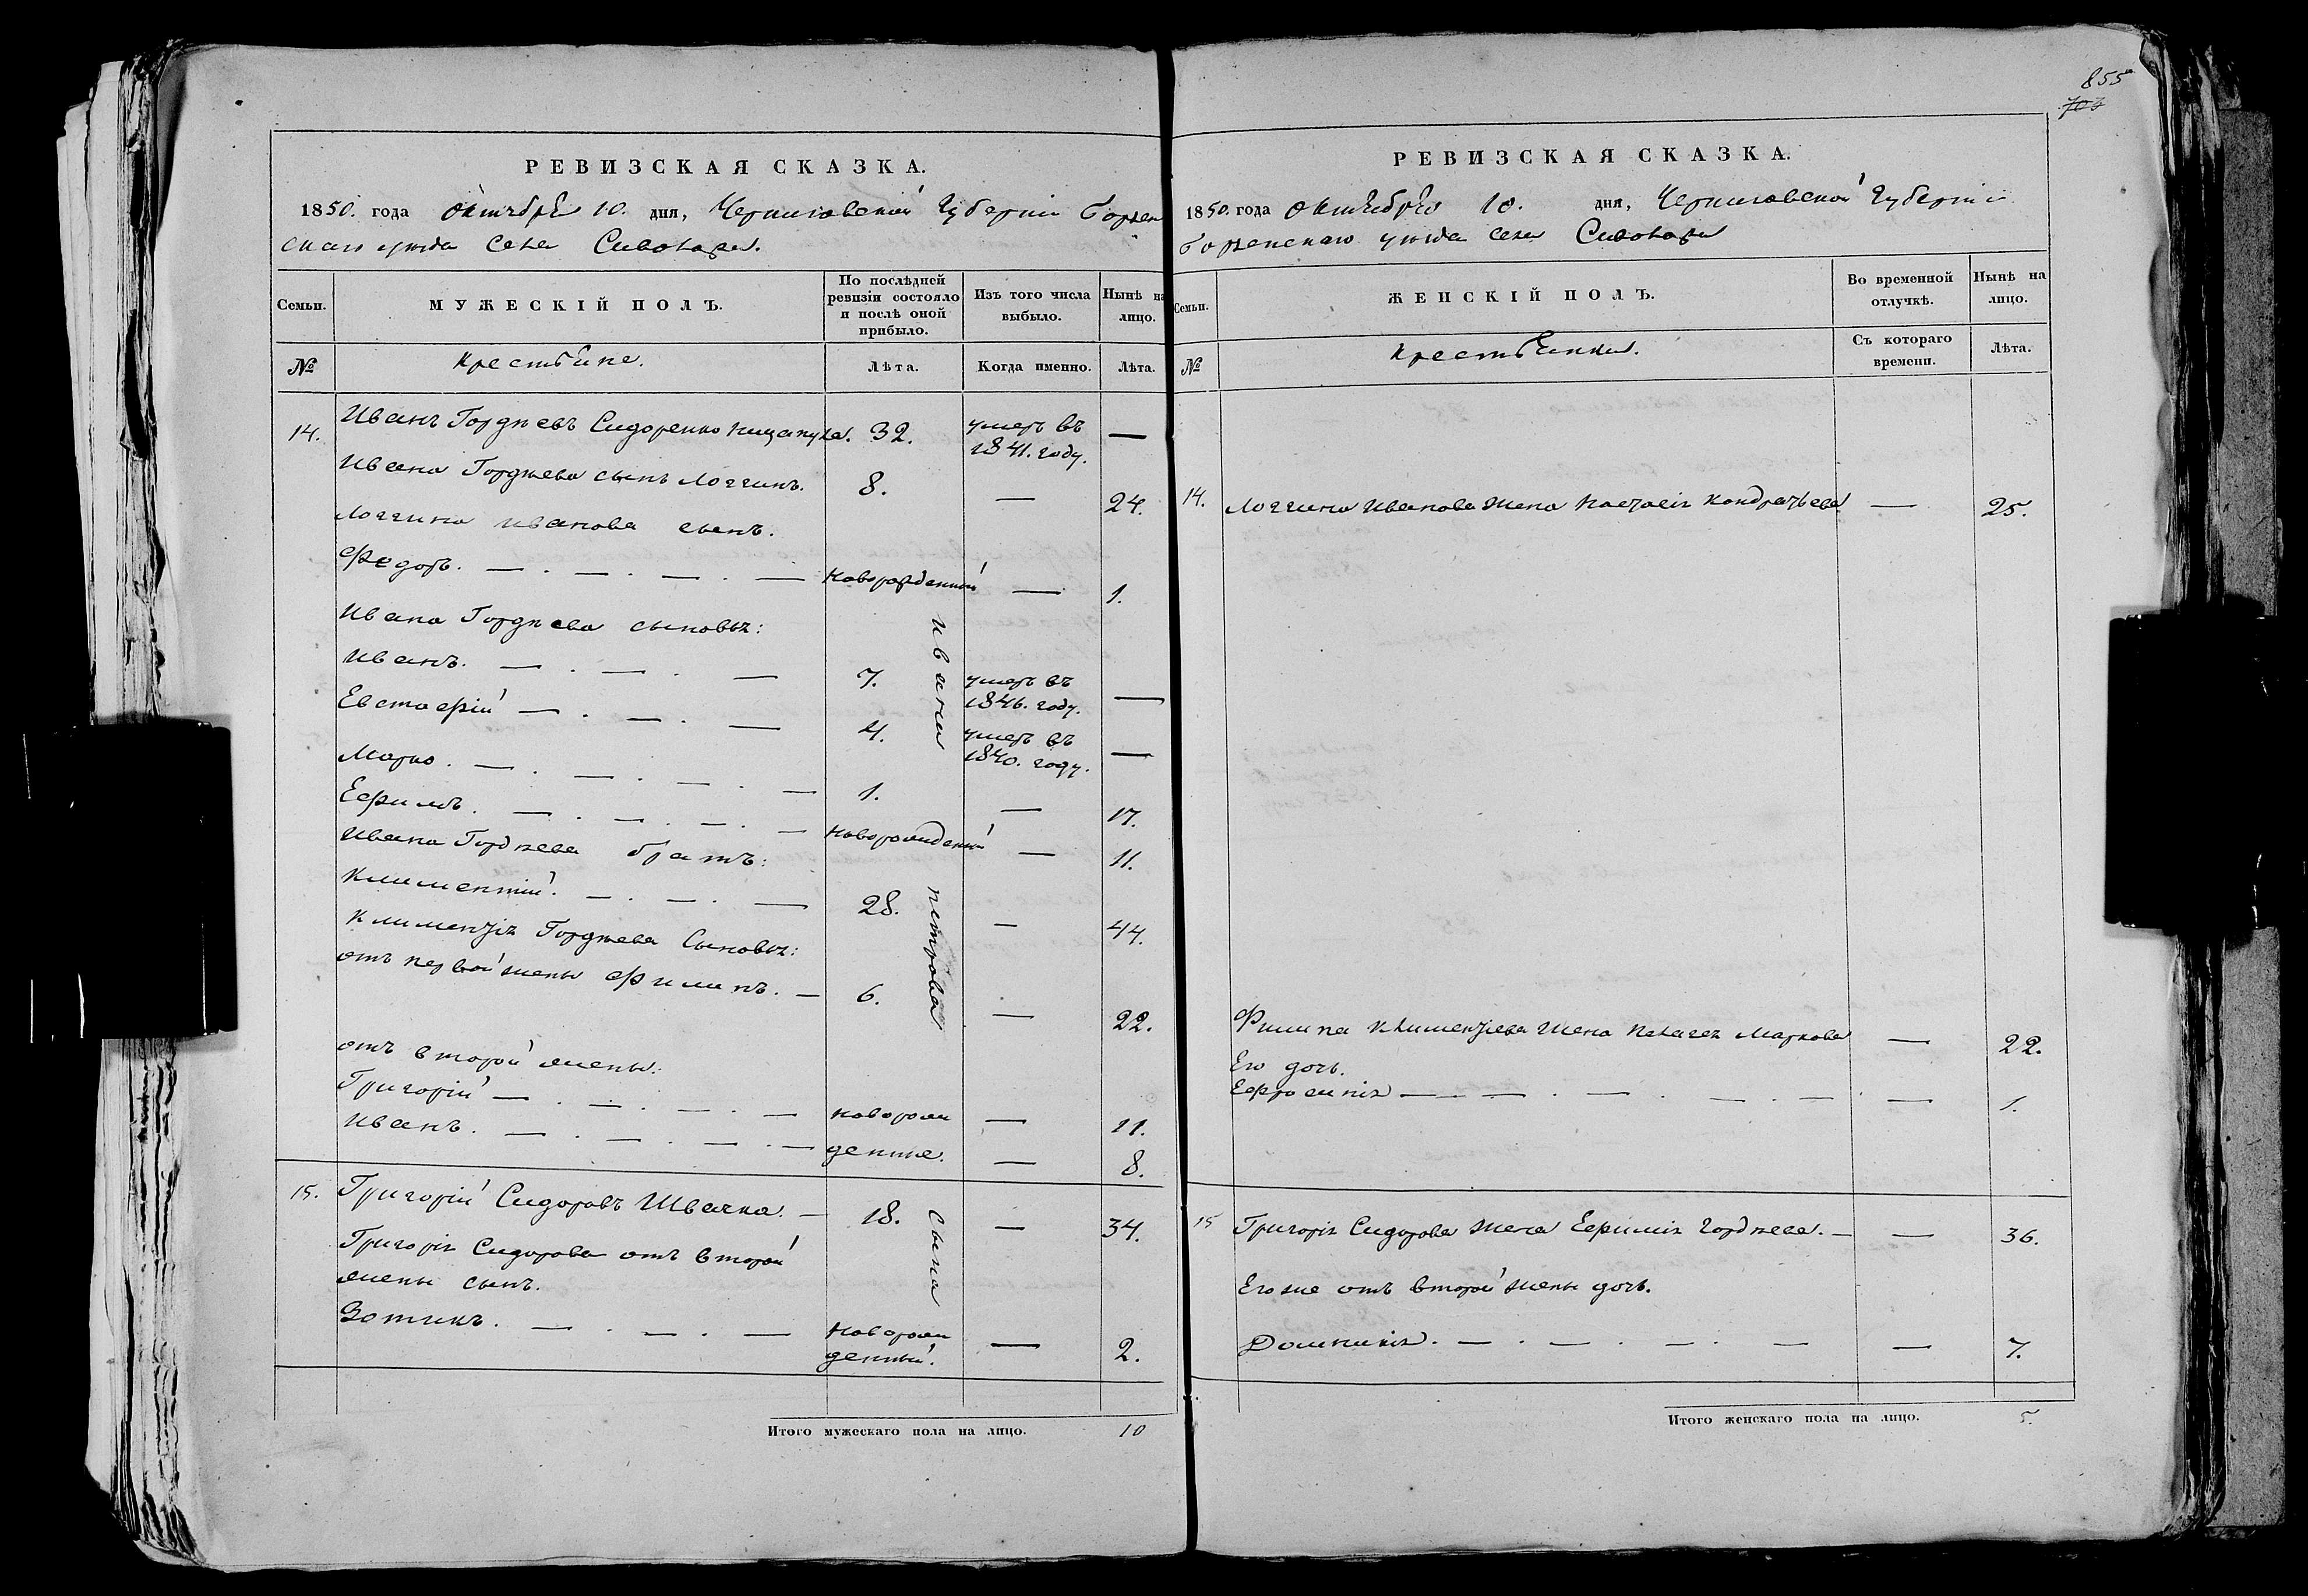 РЕВИЗСКАЯ СКАЗКА.
1850. года Октября 10. дня, Черниговской Губерніи Борзен
скаго уезда села Сиволожа.
Семьи.
МУЖЕСКІЙ ПОЛЪ.
По послѣдней ревизіи состояло и послѣ оной прибыло.
Изъ того числа выбыло.
Нынѣ на лицо.
№
Крестьяне.
Лѣта.
Когда именно.
Лѣта.
14. Иванъ Гордѣевъ Сидоренко 32. умеръ въ 1841. году. —
Ивана Гордѣева сынъ Логгинъ. 8. — 24.
Логгина Иванова сынъ.
Федоръ. — . — . — . — Новорожденный — 1.
Ивана Гордѣева сыновья:
Иванъ. — . — . — 7. умеръ въ 1846. году. —
Евстафій — . — . — 4. умеръ въ 1840. году. —
Марко. — . — . — . — 1. — 17.
Ефимъ. — . — . — . — Новорожденный — 11.
Ивана Гордѣева братъ:
Климентій. — . — . — 28. — 44.
Климентія Гордѣева Сыновья:
отъ первой жены Филипъ. — 6. — 22.
отъ второй жены:
Григорій — . — . — . — новорож — 11.
Иванъ. — . — . — . — денные. — 8.
15. Григорій Сидоровъ Швачка. — 18. — 34.
Григорія Сидорова отъ второй
жены сынъ.
Зотикъ. — . — . — Новорож
денный. — 2.
Ивана Петрова сына
Итого мужескаго пола на лицо. 10
855
703
РЕВИЗСКАЯ СКАЗКА.
1850. года Октября 10. дня, Черниговской Губерніи
Борзенскаго уезда села Сиволожа
Семьи.
ЖЕНСКІЙ ПОЛЪ.
Во временной отлучкѣ.
Нынѣ на лицо.
№
Крестьянки.
Съ котораго времени.
Лѣта.
14. Логгина Иванова жена Настасія Кондратьева — 25.
Филипа Климентіева жена Пелагея Маркова — 22.
Его дочь.
Ефросинія — . — . — . — . — — 1.
15 Григорія Сидорова жена Ефимія Гордѣева. — — 36.
Его же отъ второй жены дочь.
Домникія. — . — . — . — . — — 7.
Итого женскаго пола на лицо. 5.